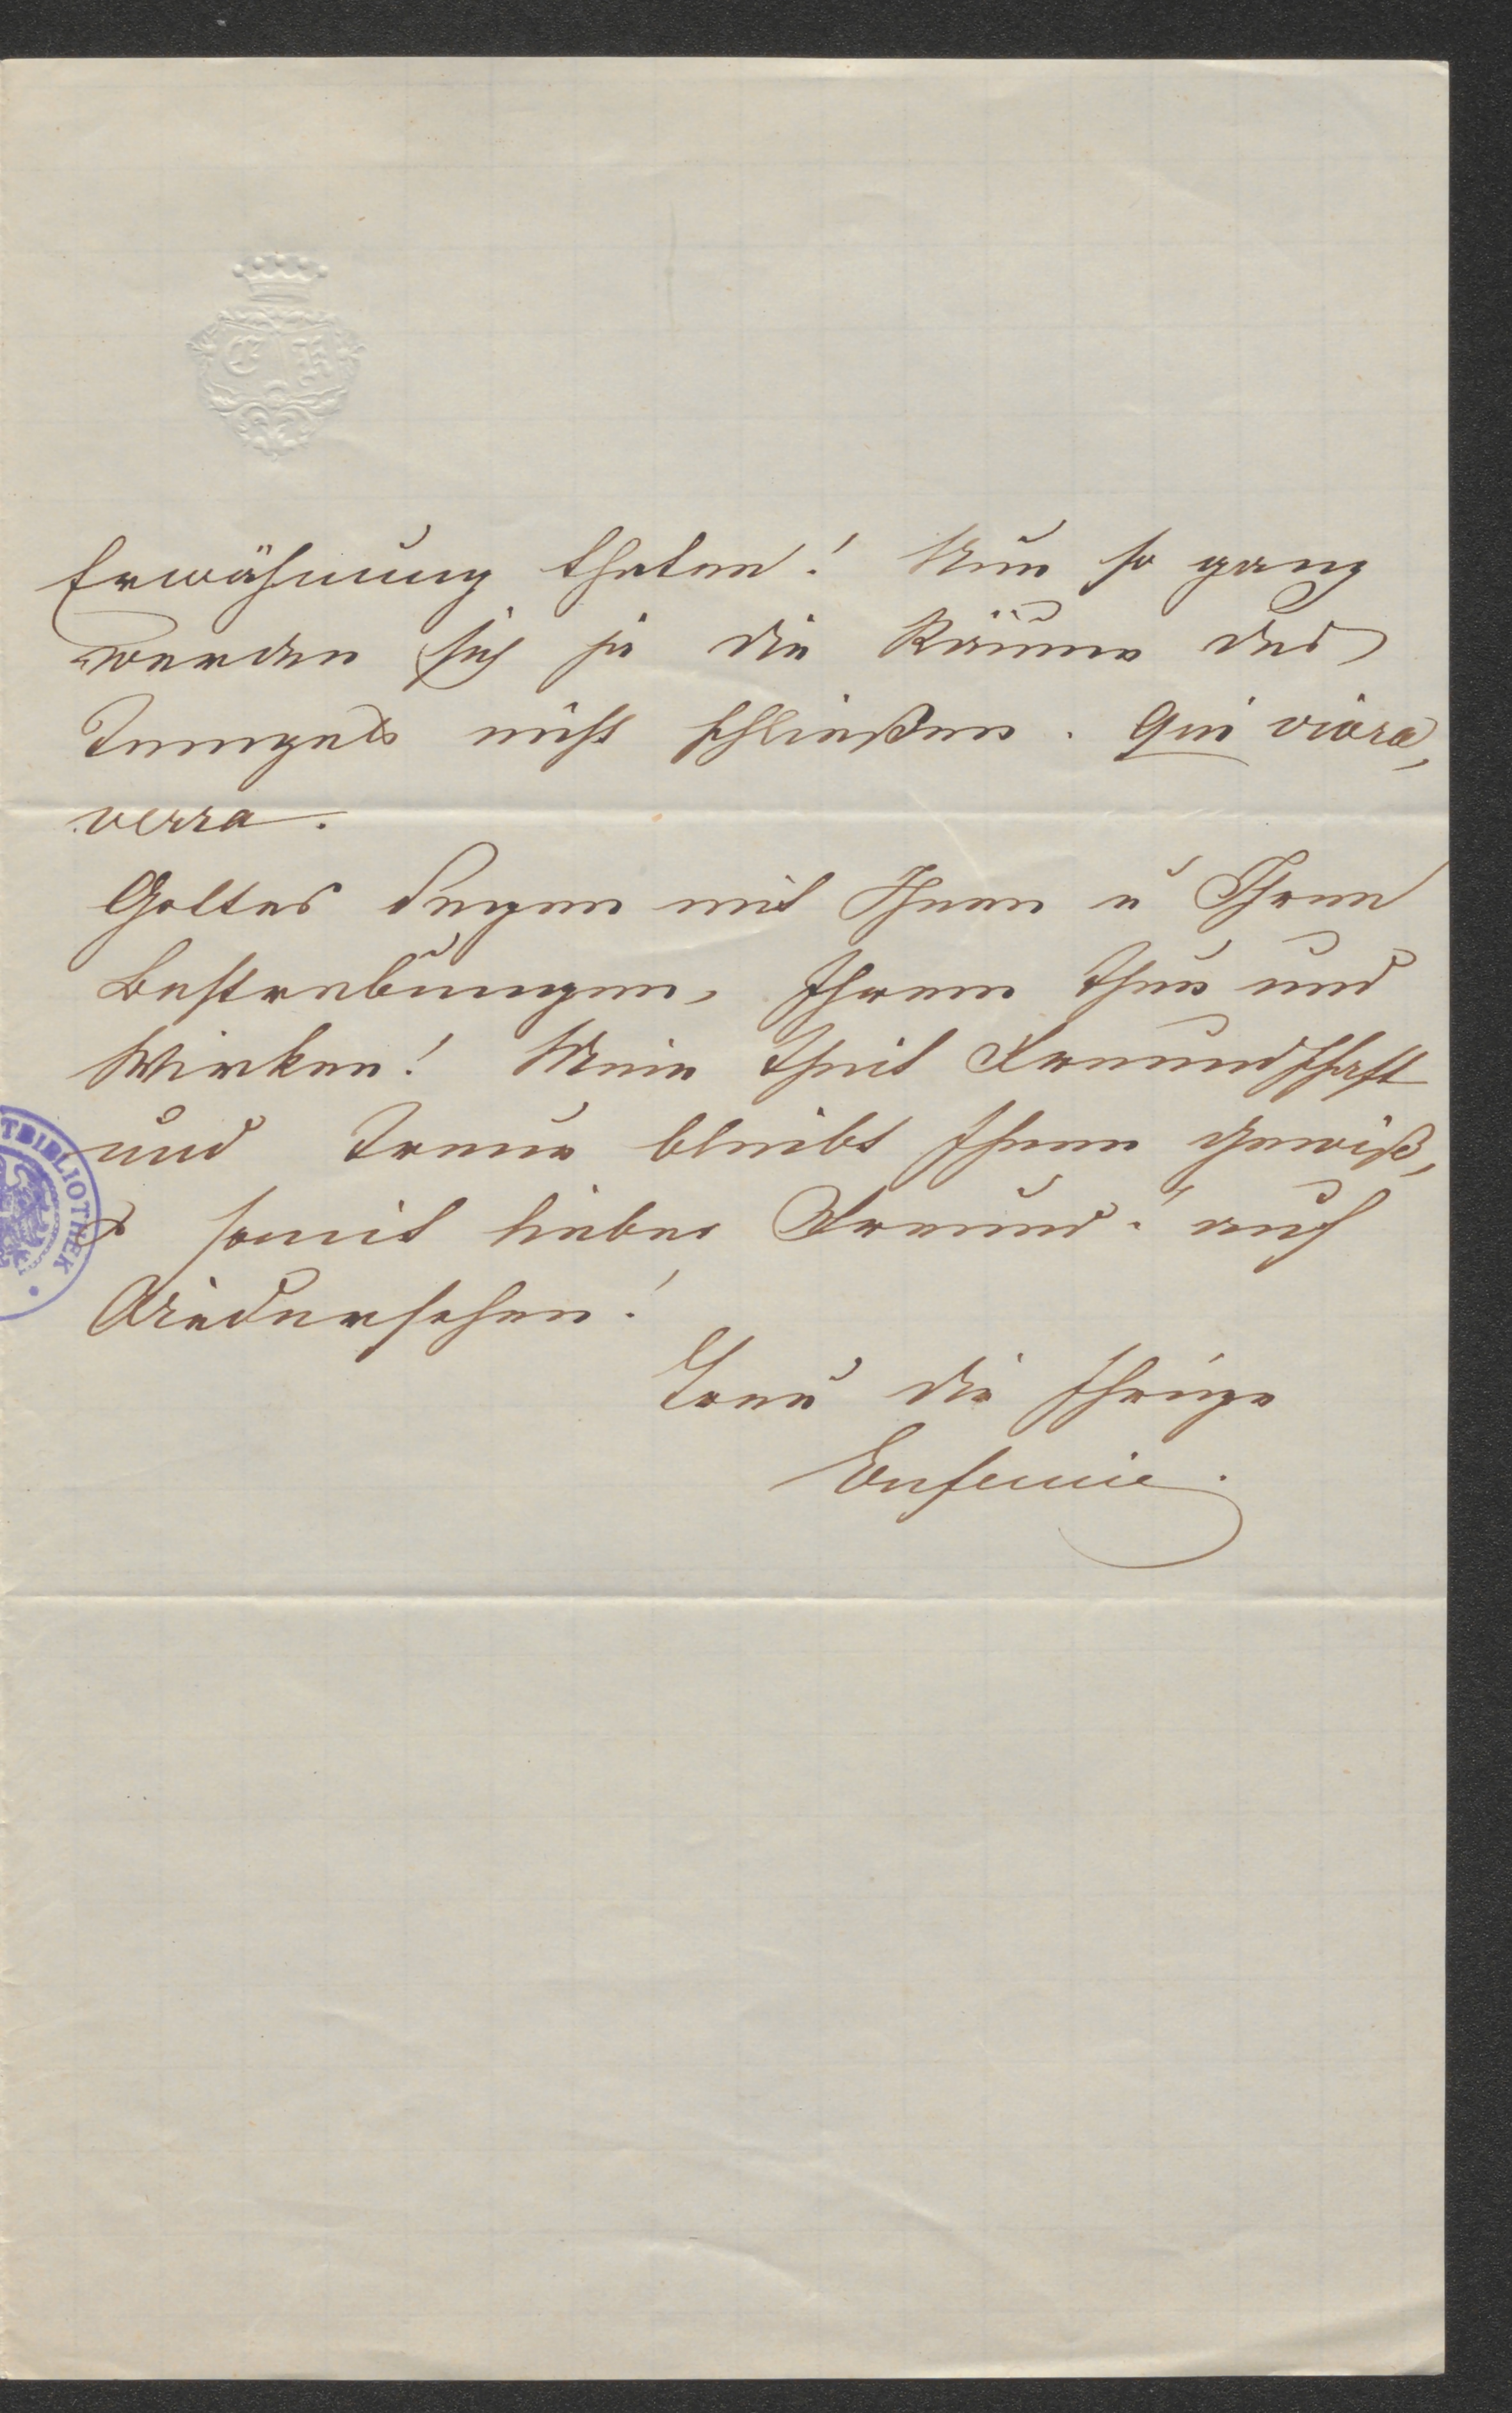 E K
Erwähnung thaten! Nun so ganz
werden sich ja die Räume des
Tempels nicht schließen. Qui vivra,
verra.
Gottes Segen mit Ihnen u Ihren
Bestrebungen, Ihrem Thun und
Wirken! Meine Freundschaft
und Treue bleibt Ihnen gewiß,
somit lieber Freund: "auf
Wiedersehen!
Treu die Ihrige
Eufemie.
TBIBLIOTHEK